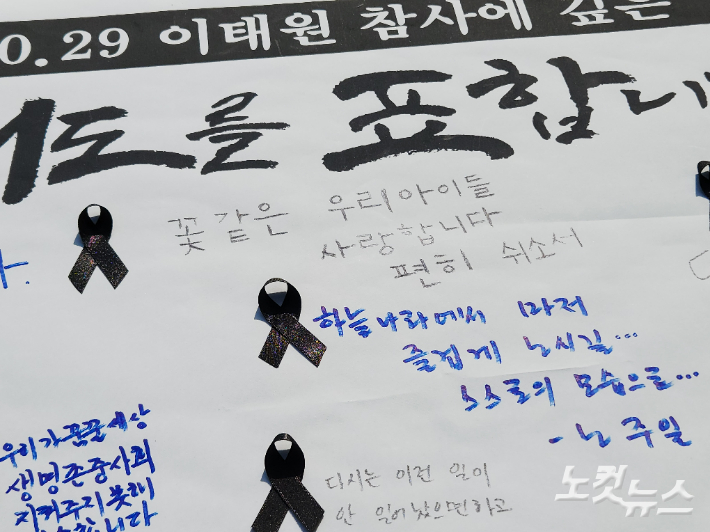 0.29 이태원 참사에 깊은
도를 표합니
꽃같은 우리아이들
사랑합니다
편히 쉬소서
하늘나라에서 마저
즐겁게 노시길...
스스로의 모습으로...
- 노주일
우리가 꿈꾼 세상
생명존중사회
지켜주지 못해
합니다
다시는 이런 일이
안 일어났으면하고
노컷뉴스